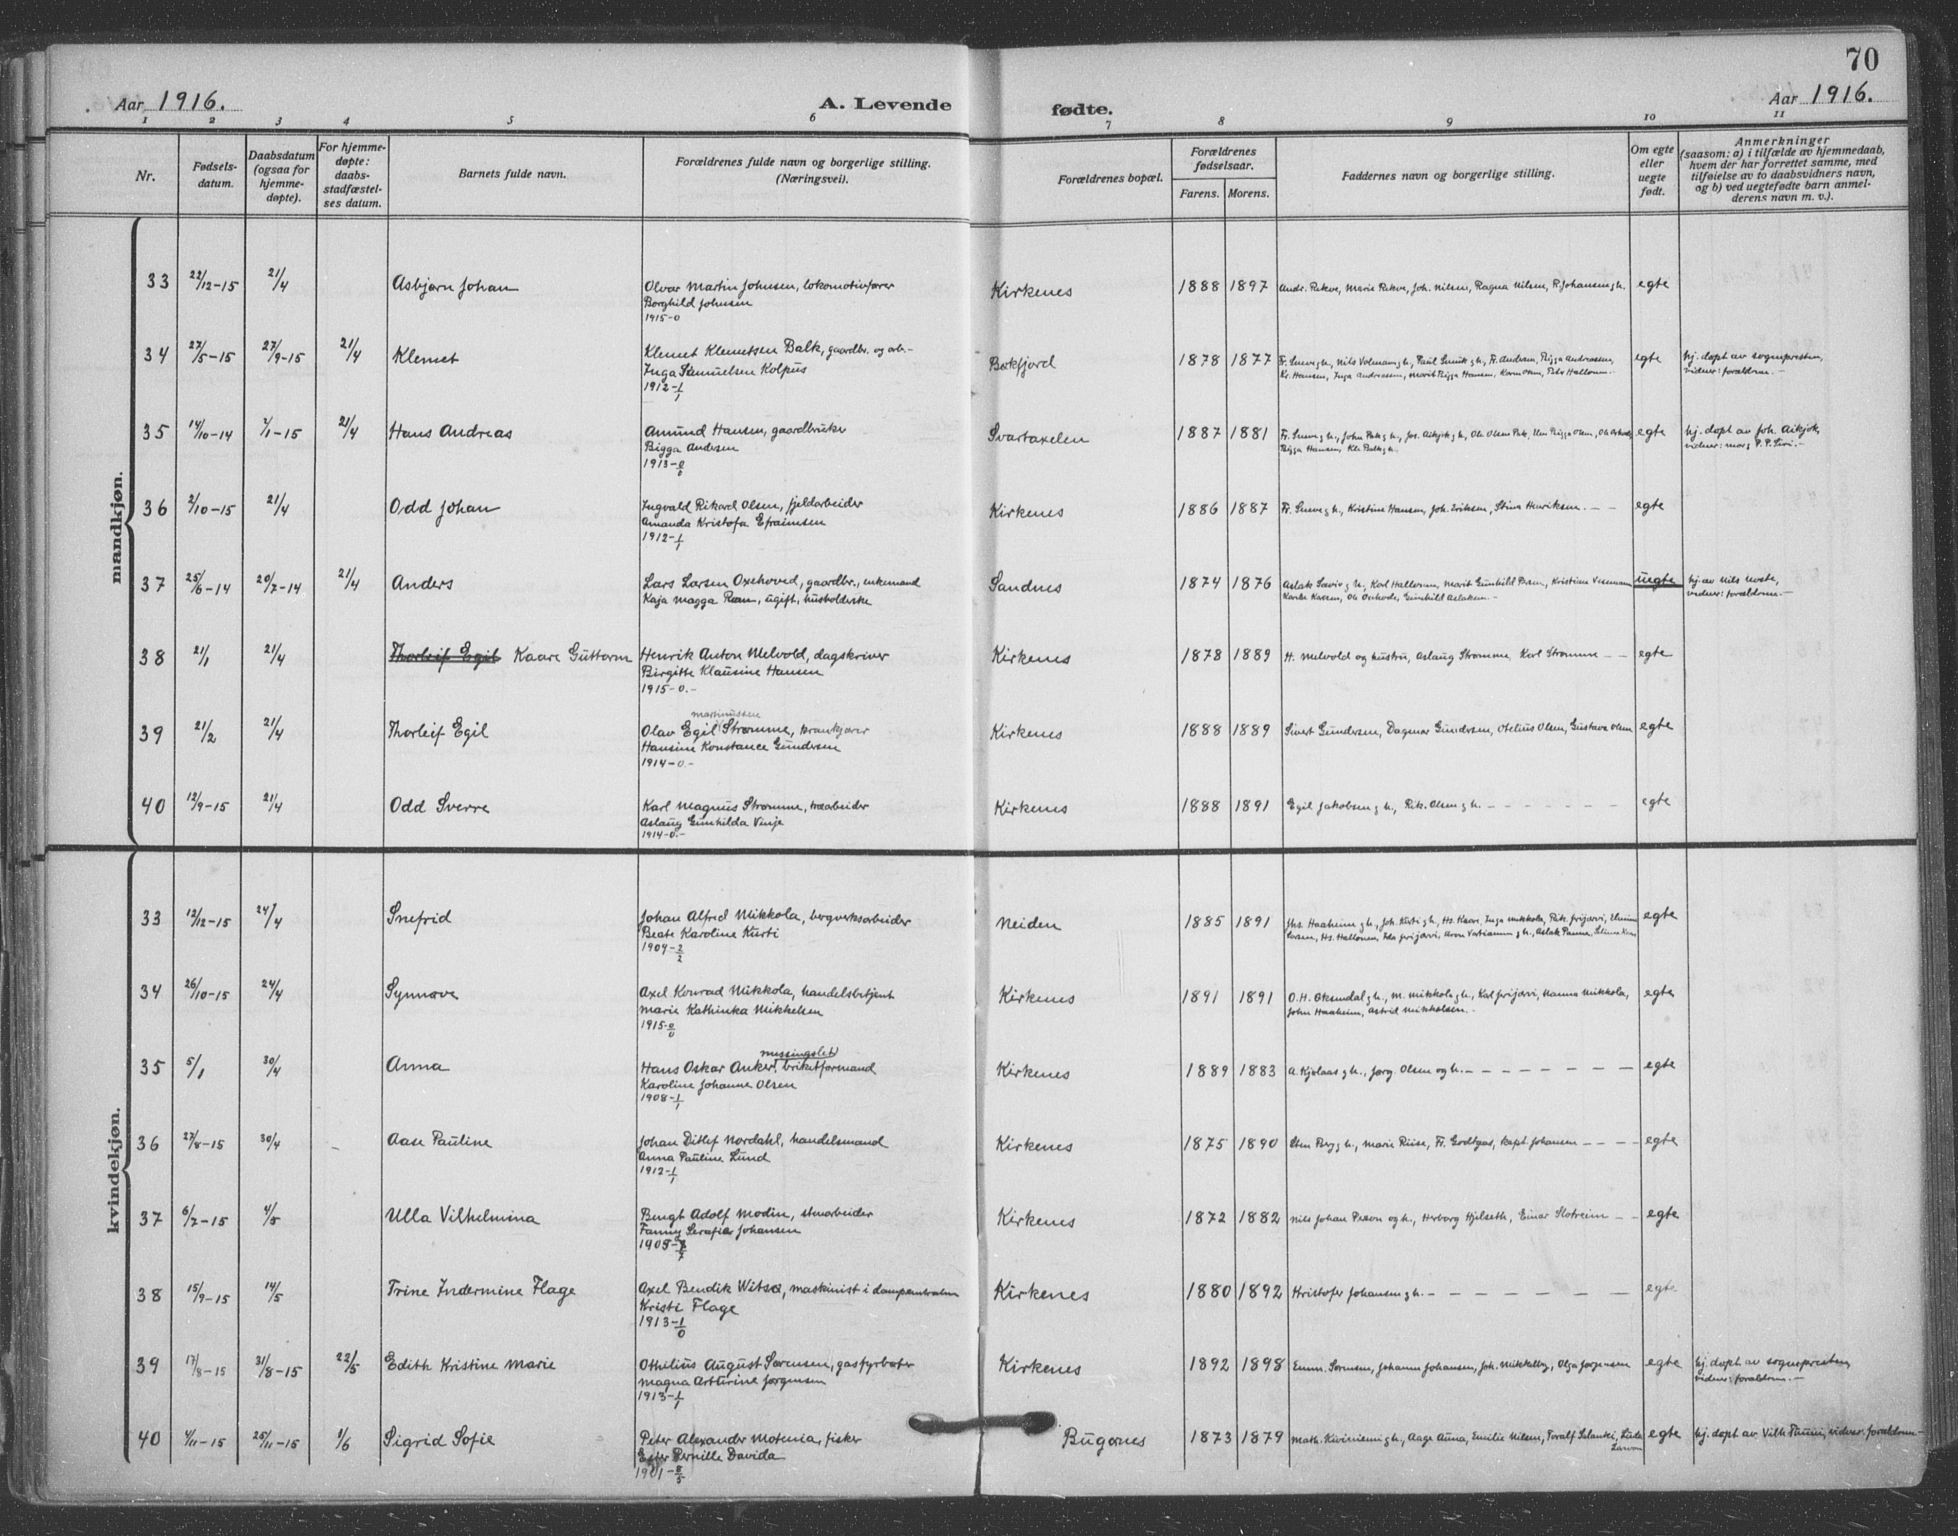 70
Aar 1916. A. Levende fødte. Aar 1916.
1 2 3 4 5 6 7 8 9 10 11
Nr.
Fødsels-
datum.
Daabsdatum
(ogsaa for
hjemme-
døpte).
For hjemme-
døpte:
daabs-
stadfæstel-
ses datum.
Barnets fulde navn.
Forældrenes fulde navn og borgerlige stilling.
(Næringsvei).
Forældrenes bopæl.
Forældrenes
fødselsaar.
Farens. Morens.
Faddernes navn og borgerlige stilling.
Om egte
eller
uegte
født.
Anmerkninger
(saasom: a) i tilfælde av hjemmedaab,
hvem der har forrettet samme, med
tilføielse av to daabsvidners navn,
og b) ved uegtefødte barn anmel-
derens navn m. v.).
mandkjøn.
33 22/12-15 21/4 Asbjørn Johan Olvar Martin Johnsen, lokomotivfører Kirkenes 1888 1897 Andr. Rekve, Marie Rekve, Joh. Nilsen, Ragna Nilsen, P. Johansen g h. egte
Borghild Johnsen
1915-0
34 27/5-15 27/9-15 21/4 Klemet Klemet Klemetsen Balk, gaardbr. og arb.- Bøkfjord 1878 1877 egte hj. døpt av sognepresten,
Inga Samuelsen Kolpus Kr. Hansen, Inga Andreassen, Marit Bigga Hansen, vidner: forældrene.-
1912-1/1
35 14/10-14 1/1-15 21/4 Hans Andreas Amund Hansen, gaardbruker Svartaxelen 1887 1881 egte hj. døpt av Joh. Aikjok,
Bigga Andersen Bigga Hansen, vidner: mor g P. P. Sivi.-
1913-0/0
36 2/10-15 21/4 Odd Johan Ingvald Rikard Olsen, fjeldarbeider Kirkenes 1886 1887 Kristine Hansen, Joh. Eriksen, Stina Henriksen.-- egte
Amanda Kristofa Efraimsen
1912-1/1
37 25/6-14 20/7-14 21/4 Anders Lars Larsen Oxehoved, gaardbr., enkemand Sandnes 1874 1876 Karl Hallonen, Marit Gunhild uegte
Kaja Magga Ran, ugift, husholderske vidner: forældrene.-
38 21/1 21/4 Thorleif Egil Kaare Guttorm Henrik Anton Melvold, dagskriver Kirkenes 1878 1889 H. Melvold og hustru, Aslaug Strømme, Karl Strømme -- egte
Birgitte Klausine Hansen
1915-0.-
39 21/2 21/4 Thorleif Egil martinussen
Olav Egil Strømme, krankjører Kirkenes 1888 1889 Sivert Gundersen, Dagmar Gundersen, Otelius Olsen, Gustava Olsen egte
Hansine Konstance Gundersen
1914-0.-
40 12/9-15 21/4 Odd Sverre Karl Magnus Strømme, træarbeider Kirkenes 1888 1891 Egil Jakobsen g h., Rik. Olsen g h. - - - - - - egte
Aslaug Gunhilda Vinje
1914-0.-
kvindekjøn.
33 12/12-15 24/4 Snefrid Johan Alfred Mikkola, bergverksarbeider Neiden 1885 1891 Jhs. Haaheim g h., Joh. Kurti g h., Hs. Kaare, Inga Mikkola, egte
Beate Karoline Kurti
1904-2/2
34 26/10-15 24/4 Synnøve Axel Konrad Mikkola, handelsbetjent Kirkenes 1891 1891 O.H. Oksendal g h., M. Mikkola g h., Kal Prijærvi, Hanna Mikkola, egte
Marie Kathinka Mikkelsen John Haaheim, Astrid Mikkolsen.-
1915-0/0
35 5/1 30/4 Anna messingslet
Hans Oskar Anker, briketformand Kirkenes 1889 1883 A. Kjølaas g h., Jørg. Olsen og h. - - - - - - egte
Karoline Johanne Olsen
1908-1/1
36 27/8-15 30/4 - Aase Pauline Johan Ditlef Nordahl, handelsmand Kirkenes 1875 1890 Sten Berg g h., Marie Riise, Fr. Godtgas, kapt. Johansen - - - - egte
Anna Pauline Lund
1912-1/1
37 6/7-15 4/5 Ulla Vilhelmina Bengt Adolf Modin, stenarbeider Kirkenes 1872 1882 Nils Johan Person og h., Herborg Hjelseth, Einar Slotreim -- egte
Fanny Serafia Johansen
38 15/9-15 14/5 Trine Indermine Flage Axel Bendik Witsø, maskinist i dampcentralen Kirkenes 1880 1892 Kristofer Johansen g h. - - - - - - egte
Kristi Flage
1913-1/0
39 17/8-15 31/8-15 22/5 Edith Kristine Marie Othilius August Sørensen, gasfyrbøter Kirkenes 1892 1898 Emm. Sørensen, Johanne Johansen, Joh. Mikkelby, Olga Jørgensen egte hj. døpt av sognepresten,
Magna Arthirine Jørgensen vidner: forældrene.-
1913-1/1
40 4/11-15 25/11-15 1/6 Sigrid Sofie Peter Alexander Motenia, fisker Bugønes 1873 1879 Math. Kiviniemi g h., Aage Auna, Emilie Nilsen, Toralf Salanki, egte hj. døpt av Vilh. Pauni, vidner: forældrene-
Ester Pernille Davida
1901-8/5